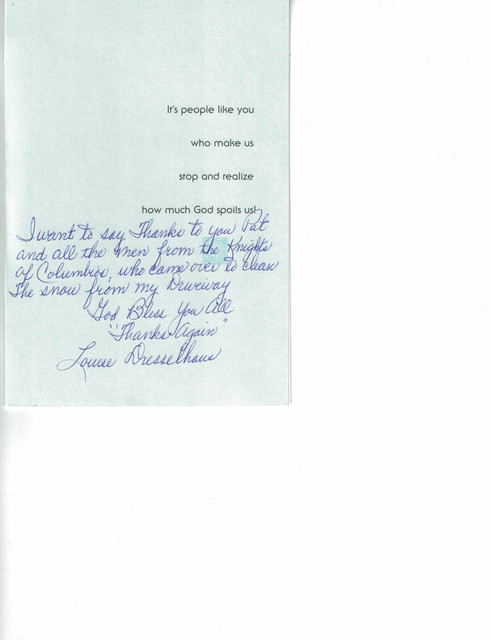 It's people like you
who make us
stop and realize
how much God spoils us!
I want to say Thanks to you Pat
and all the men from the Knights
of Columbus, who came over to clean
The snow from my Driveway
God Bless You All
"Thanks Again"
Louise Dresselhaus